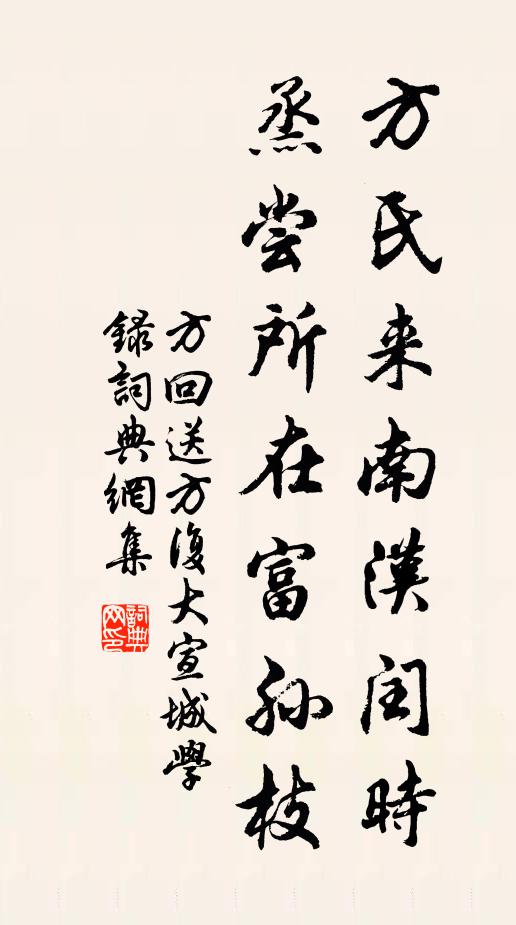 方氏来南漢闰時
烝尝所在富孙枝
方回送方復大宣城學
録詞典網集
詞典网印